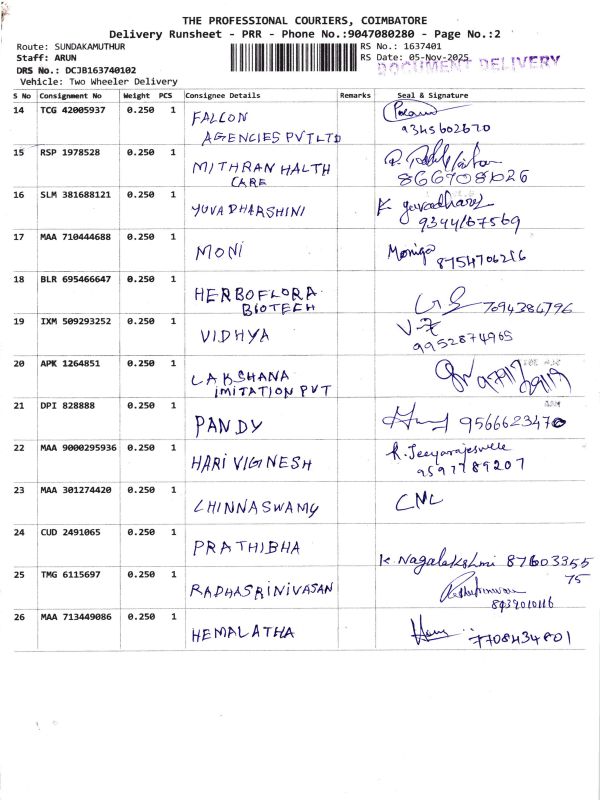 THE PROFESSIONAL COURIERS, COIMBATORE
Delivery Runsheet - PRR - Phone No.:9047080280 - Page No.:2
Route: SUNDAKAMUTHUR RS No.: 1637401
Staff: ARUN RS Date: 05-Nov-2025
DOCUMENT DELIVERY
DRS No.: DCJB163740102
Vehicle: Two Wheeler Delivery
S No Consignment No Weight PCS Consignee Details Remarks Seal & Signature
14 TCG 42005937 0.250 1 FALCON
AGENCIES PVT LTD 9345602670
15 RSP 1978528 0.250 1
MITHRAN HALTH
CARE 8667081026
16 SLM 381688121 0.250 1 YUVADHARSHINI K yuvadharshi
9344167569
17 MAA 710444688 0.250 1 MONI Moniga
8754706216
18 BLR 695466647 0.250 1 HERBOFLORA
BIOTECH 7094384796
19 IXM 509293252 0.250 1 VIDHYA
9952874965
20 APK 1264851 0.250 1 LAKSHANA
IMITATION PVT
21 DPI 828888 0.250 1 PANDY 9566623470
22 MAA 9000295936 0.250 1 HARI VIGNESH R. Jeeyarajeswele
9597789207
23 MAA 301274420 0.250 1 CHINNASWAMY CML
24 CUD 2491065 0.250 1 PRATHIBHA
K. Nagalakshmi 87603355
75
25 TMG 6115697 0.250 1 RADHASRINIVASAN
8939010116
26 MAA 713449086 0.250 1 HEMALATHA 7708434801